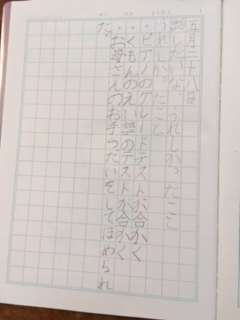 五月二十八日
うれしかったこと
うれしかったこと
・ピアノのグレードテスト合かく
・くもんのえい語のテスト合かく
・お母さんのお手つだいをしてほめられ
た